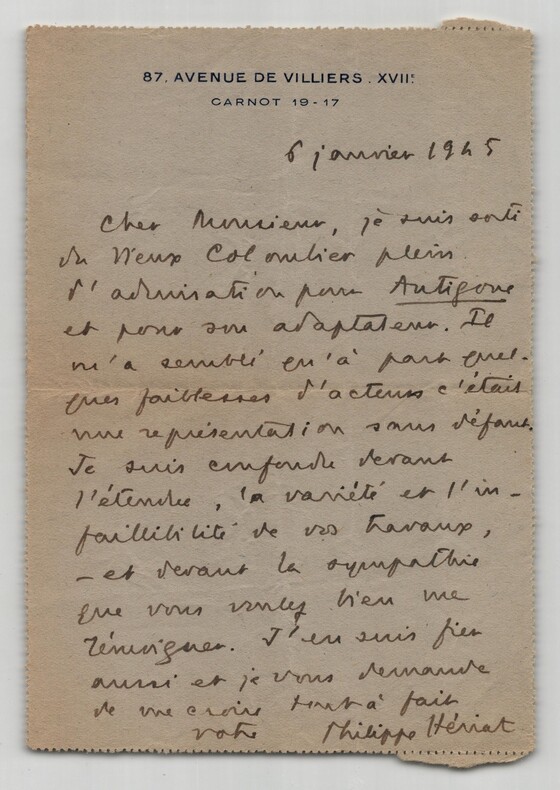 87. AVENUE DE VILLIERS. XVIIE
CARNOT 19-17
6 janvier 1945
Cher Monsieur, je suis sorti
du Vieux Colombier plein
d'admiration pour Antigone
et pour son adaptateur. Il
m'a semblé qu'à part quel-
ques faiblesses d'acteurs c'était
une représentation sans défaut.
Je suis confondu devant
l'étendue, la variété et l'in-
faillibilité de vos travaux,
– et devant la sympathie
que vous voulez bien me
témoigner. J'en suis fier
aussi et je vous demande
de me croire tout à fait
votre Philippe Hériat